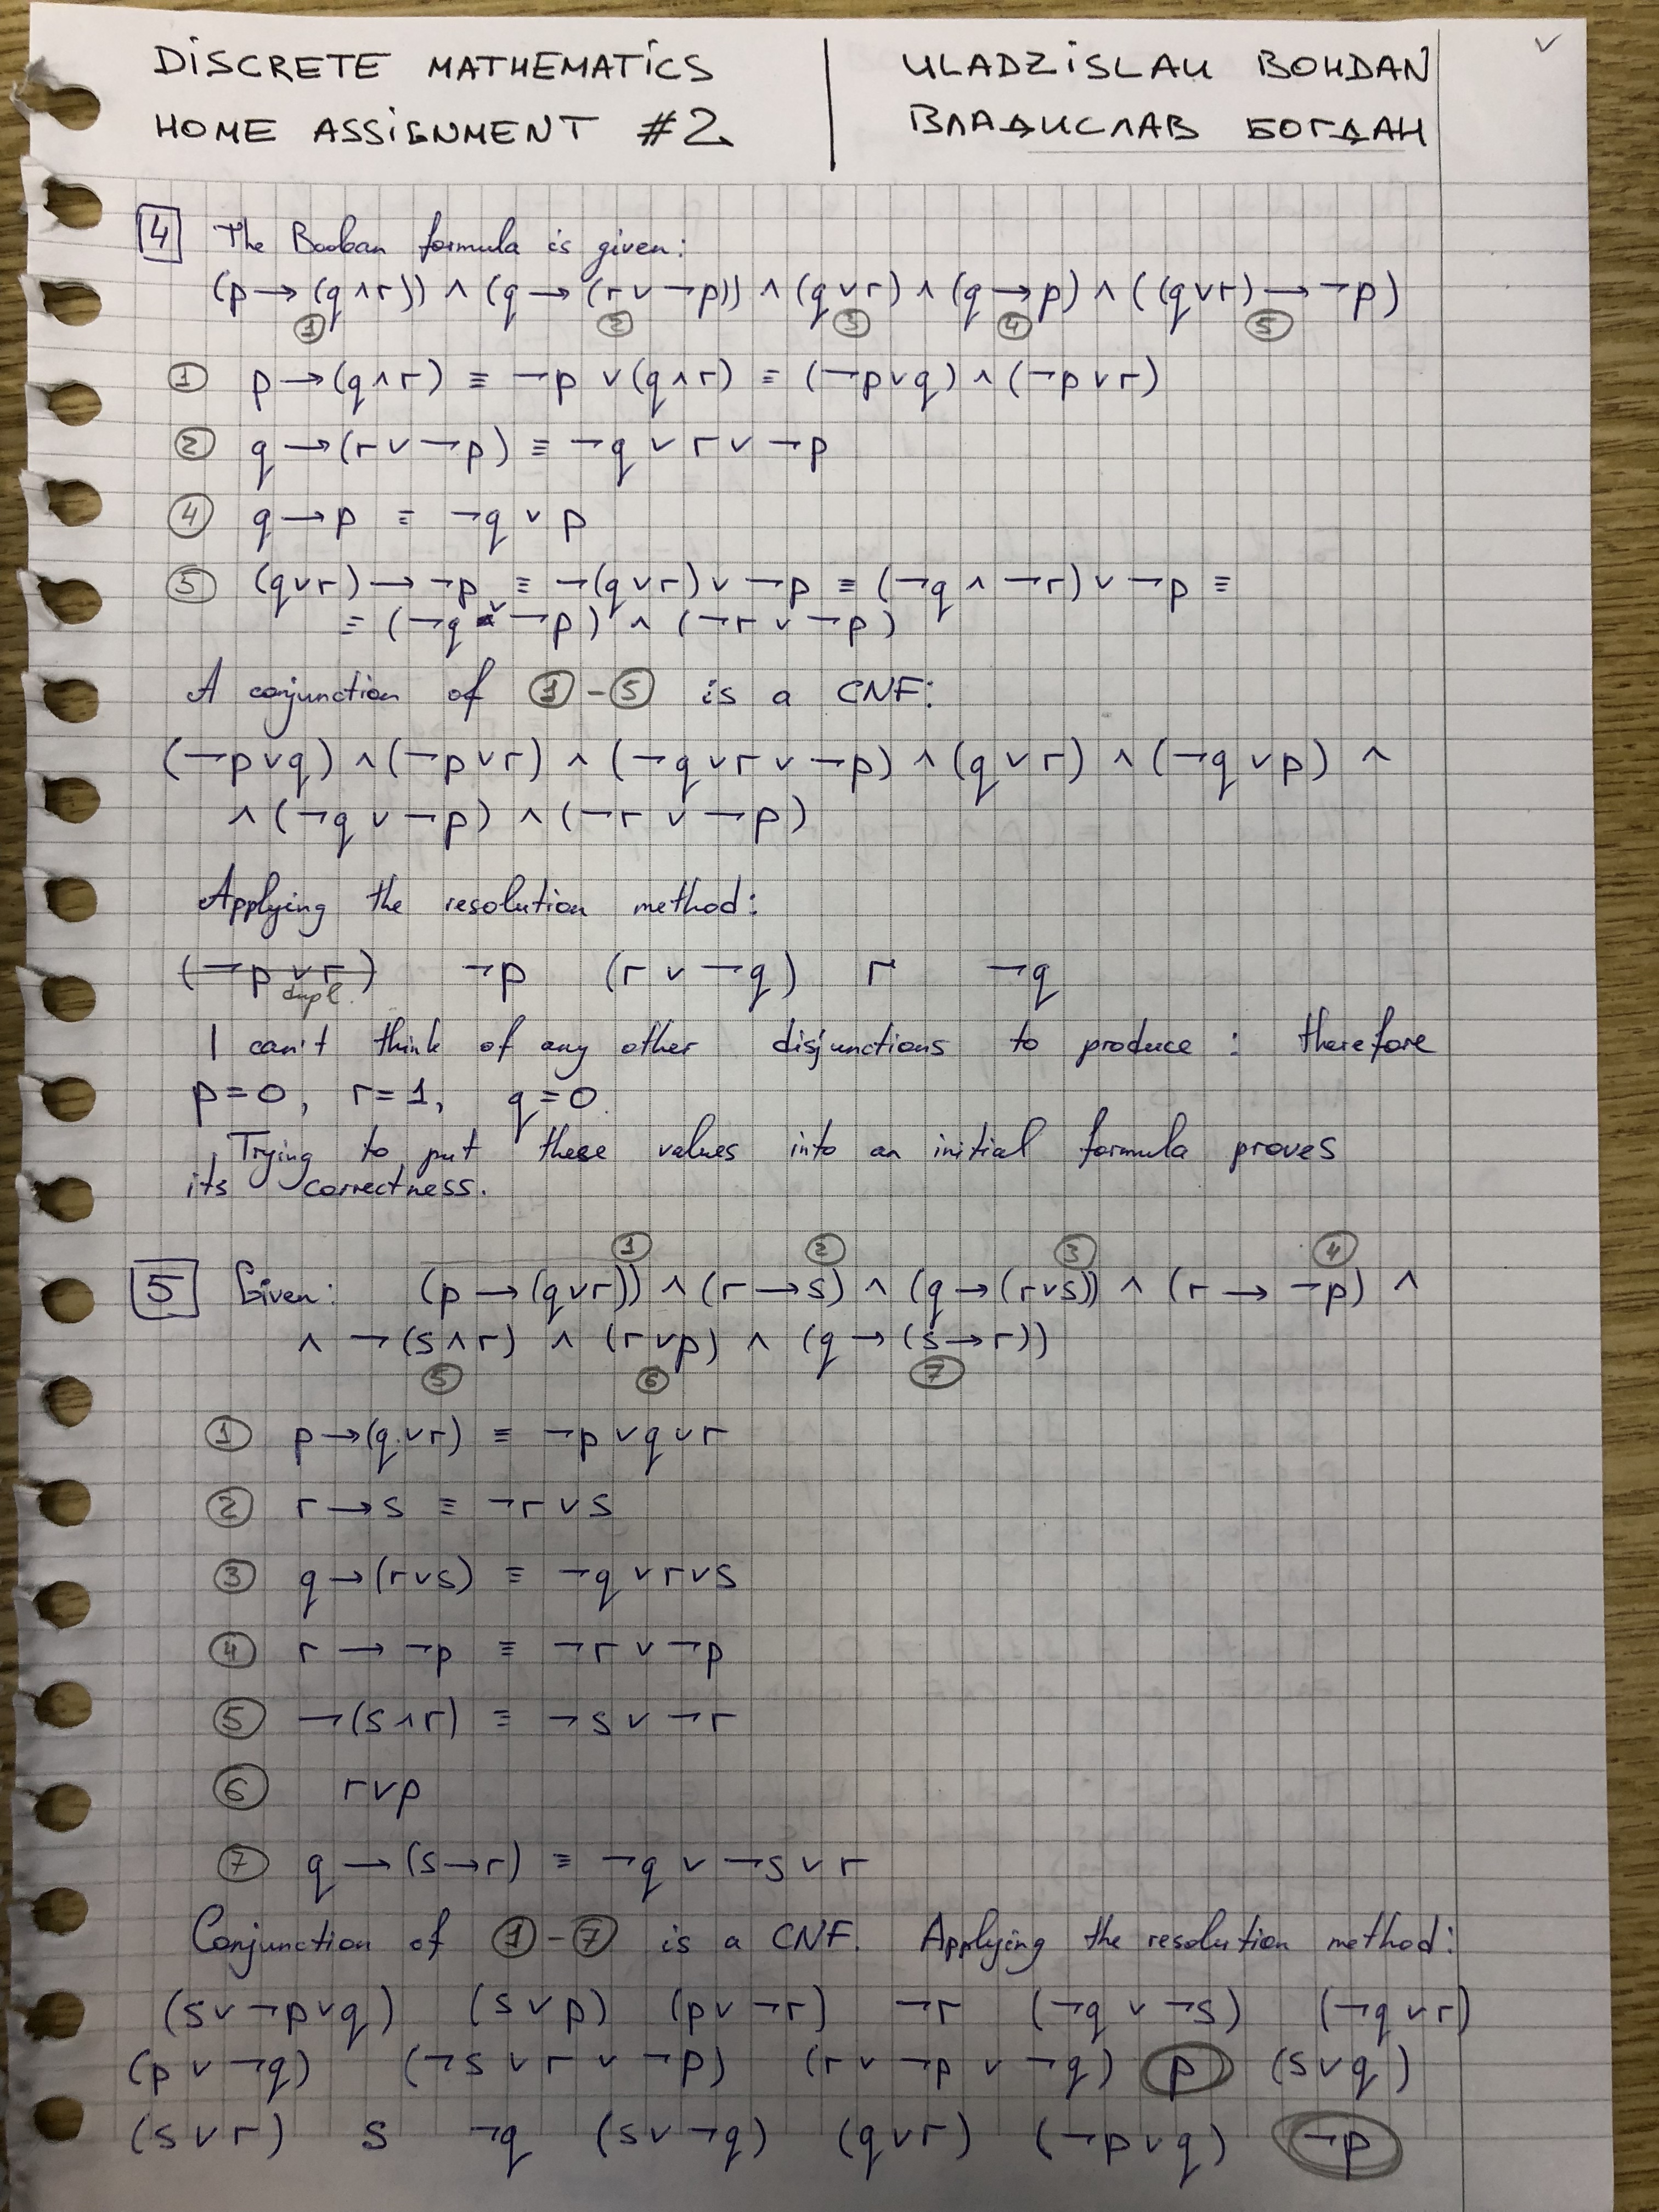 DISCRETE MATHEMATICS
HOME ASSIGNMENT #2
ULADZISLAU BOHDAN
ВЛАДИСЛАВ БОГДАН
4 The Boolean formula is given:
(p → (q ∧ r)) ∧ (q → (r ∨ ¬p)) ∧ (q ∨ r) ∧ (q → p) ∧ ((q ∨ r) → ¬p)
① ② ③ ④ ⑤
① p → (q ∧ r) ≡ ¬p ∨ (q ∧ r) ≡ (¬p ∨ q) ∧ (¬p ∨ r)
② q → (r ∨ ¬p) ≡ ¬q ∨ r ∨ ¬p
④ q → p ≡ ¬q ∨ p
⑤ (q ∨ r) → ¬p ≡ ¬(q ∨ r) ∨ ¬p ≡ (¬q ∧ ¬r) ∨ ¬p ≡
≡ (¬q ∨ ¬p) ∧ (¬r ∨ ¬p)
A conjunction of ① - ⑤ is a CNF:
(¬p ∨ q) ∧ (¬p ∨ r) ∧ (¬q ∨ r ∨ ¬p) ∧ (q ∨ r) ∧ (¬q ∨ p) ∧
∧ (¬q ∨ ¬p) ∧ (¬r ∨ ¬p)
Applying the resolution method:
(¬p ∨ r) ¬p (r ∨ ¬q) r ¬q
dupl.
I can't think of any other disjunctions to produce: therefore
p=0, r=1, q=0.
Trying to put these values into an initial formula proves
its correctness.
① ② ③ ④
5 Given: (p → (q ∨ r)) ∧ (r → s) ∧ (q → (r ∨ s)) ∧ (r → ¬p) ∧
∧ ¬(s ∧ r) ∧ (r ∨ p) ∧ (q → (s → r))
⑤ ⑥ ⑦
① p → (q ∨ r) ≡ ¬p ∨ q ∨ r
② r → s ≡ ¬r ∨ s
③ q → (r ∨ s) ≡ ¬q ∨ r ∨ s
④ r → ¬p ≡ ¬r ∨ ¬p
⑤ ¬(s ∧ r) ≡ ¬s ∨ ¬r
⑥ r ∨ p
⑦ q → (s → r) ≡ ¬q ∨ ¬s ∨ r
Conjunction of ① - ⑦ is a CNF. Applying the resolution method:
(s ∨ ¬p ∨ q) (s ∨ p) (p ∨ ¬r) ¬r (¬q ∨ ¬s) (¬q ∨ r)
(p ∨ ¬q) (¬s ∨ r ∨ ¬p) (r ∨ ¬p ∨ ¬q) p (s ∨ q)
(s ∨ r) s ¬q (s ∨ ¬q) (q ∨ r) (¬p ∨ q) ¬p